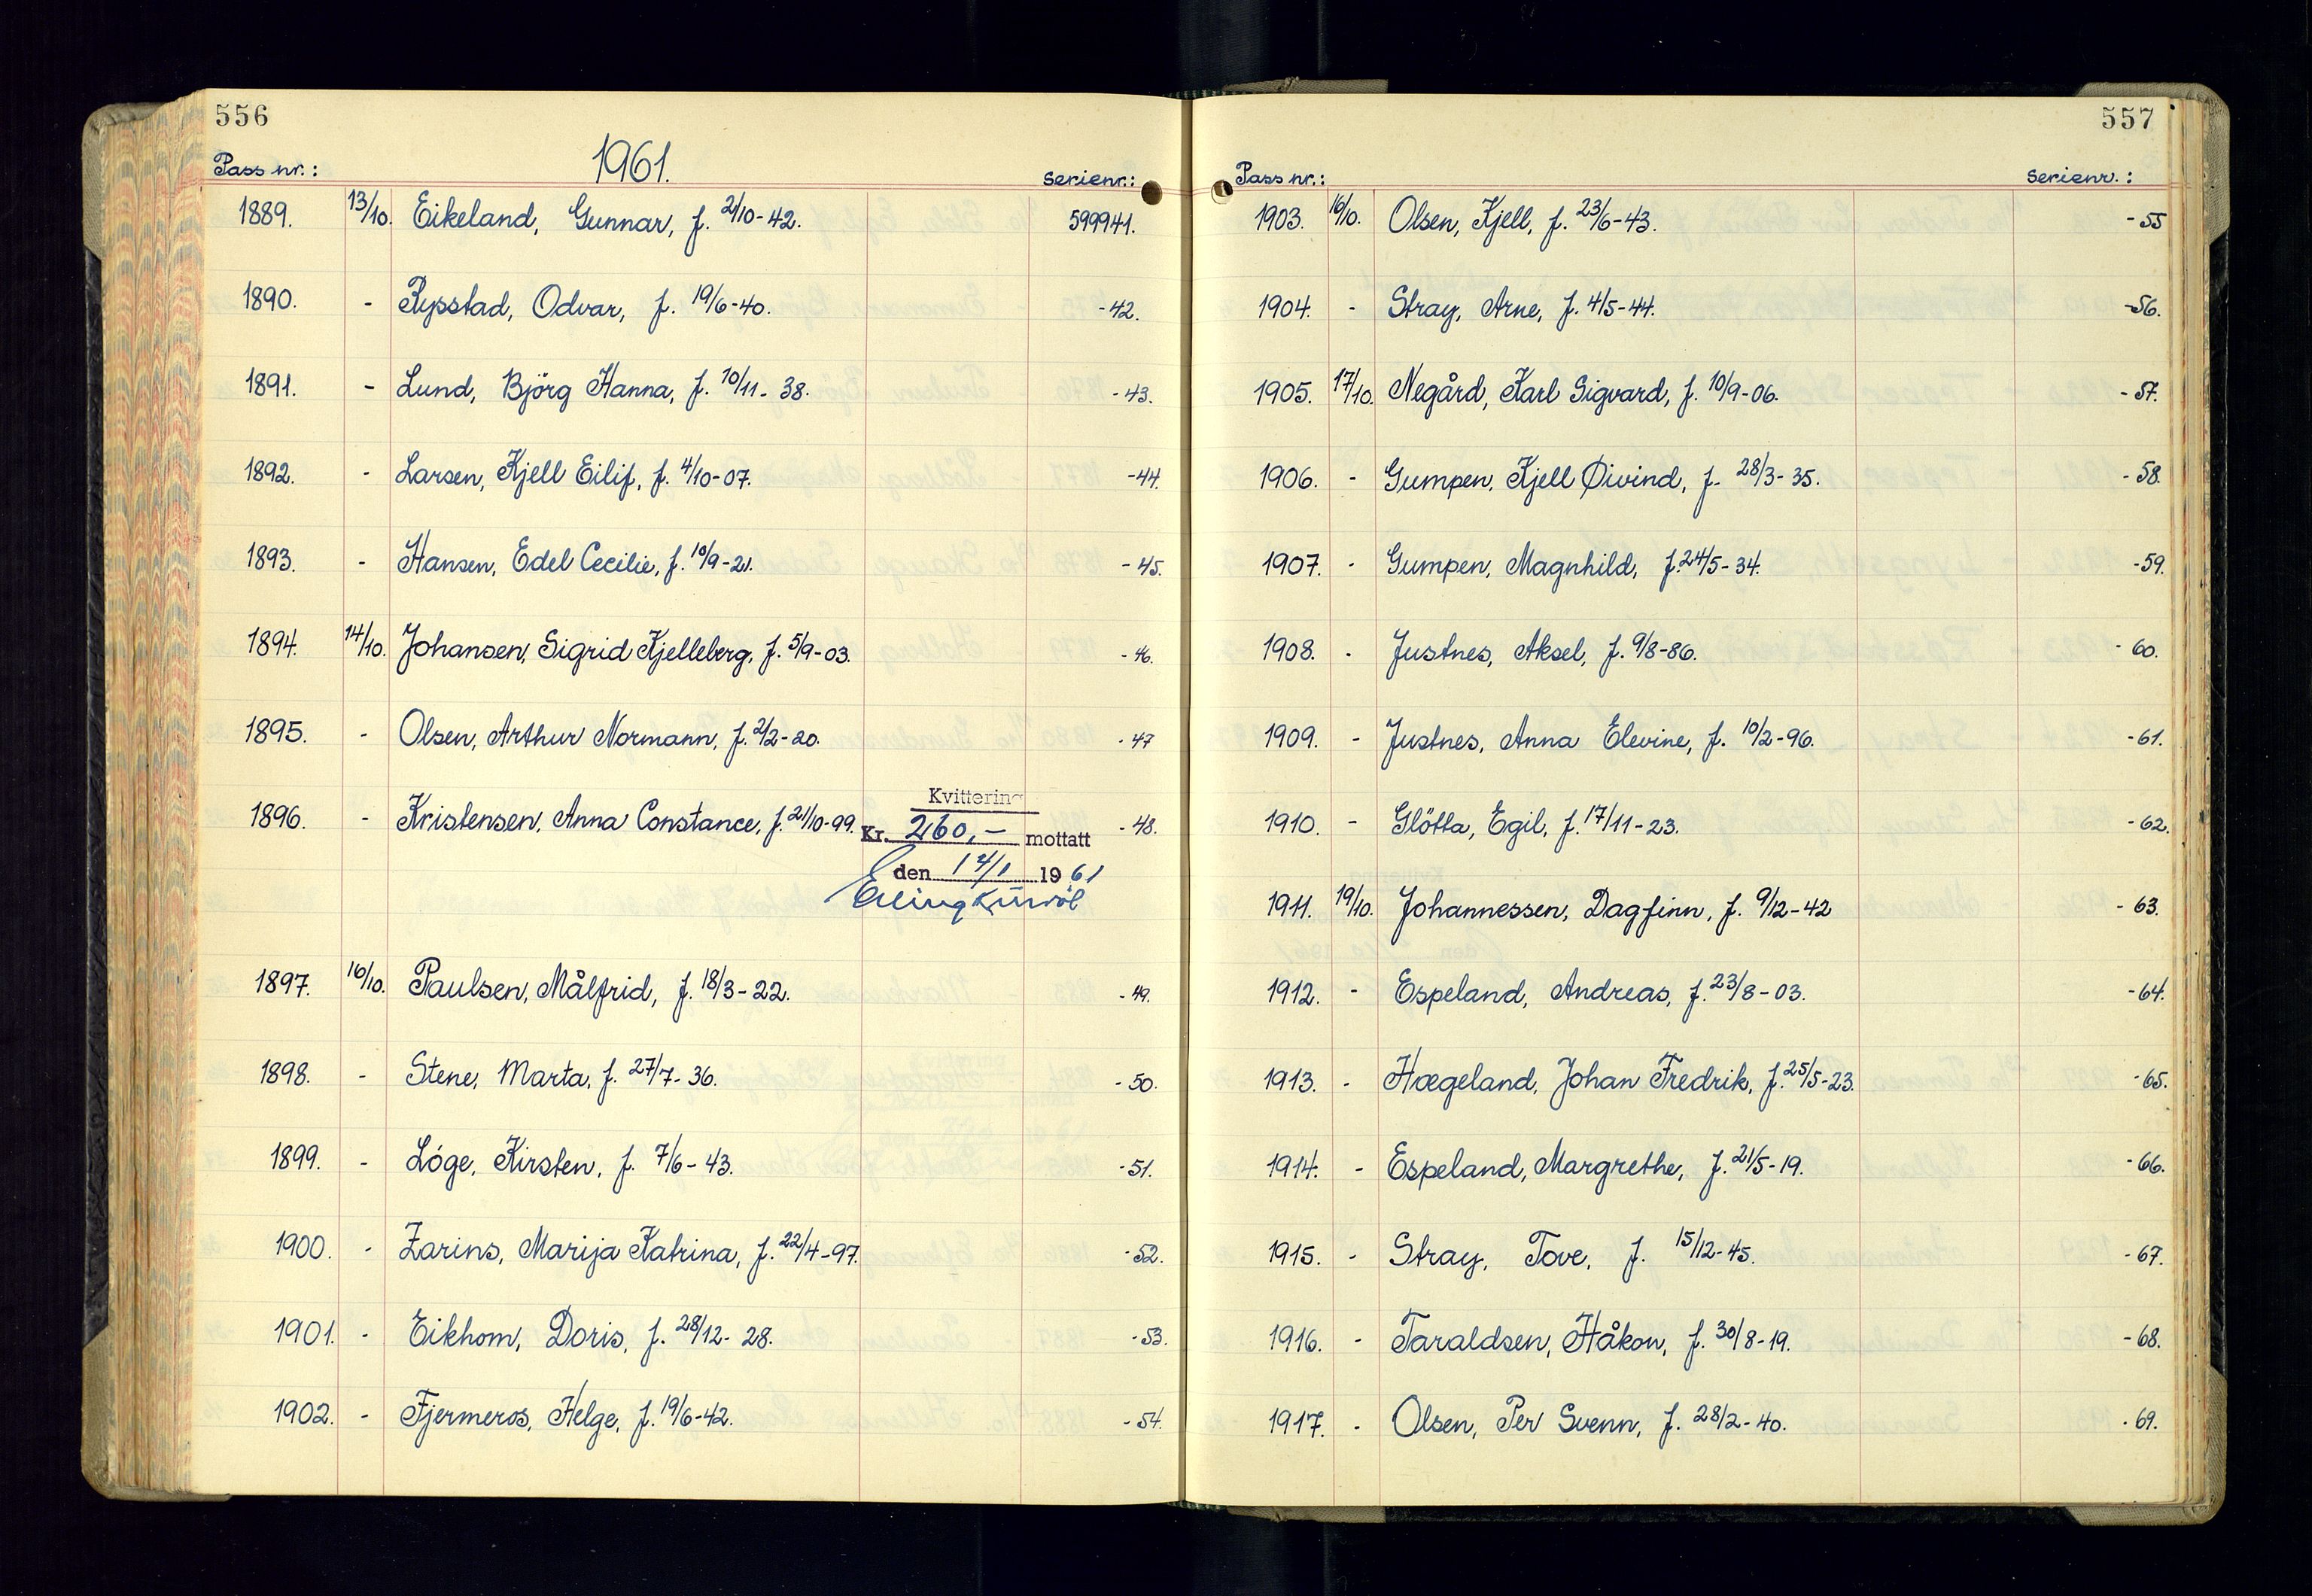 556
1961.
Pass nr.: serienr.:
1889. 13/10. Eikeland, Gunnar, f. 2/10-42. 599941.
1890. - Rysstad, Odvar, f. 19/6-40. -42.
1891. - Lund, Björg Hanna, f. 10/11-38. -43.
1892. - Larsen, Kjell Eilif, f. 4/10-07. -44.
1893. - Hansen, Edel Cecilie, f. 10/9-21. -45.
1894. 14/10. Johansen, Sigrid Kjelleberg, f. 5/9-03. -46.
1895. - Olsen, Arthur Normann, f. 2/2-20. -47
1896. - Kristensen, Anna Constance, f. 21/10-99. -48.
Kvittering
Kr. 260,- mottatt
den 19 61
Erling
1897. 16/10. Paulsen, Målfrid, f. 18/3-22. -49.
1898. - Stene, Marta, f. 27/7-36. -50.
1899. - Lóge, Kirsten, f. 7/6-43. -51.
1900. - Zarins, Marija Katrina, f. 22/4-97. -52.
1901. - Eikhom, Doris, f. 28/12-28. -53.
1902. - Fjermeros, Helge, f. 19/6-42. -54.
557
Pass nr.: serienr.:
1903. 16/10. Olsen, Kjell, f. 23/6-43. -55
1904. - Stray, Arne, f. 4/5-44. -56.
1905. 17/10. Negård, Karl Sigvard, f. 10/9-06. -57.
1906. - Gumpen, Kjell Øivind, f. 28/3-35. -58.
1907. - Gumpen, Magnhild, f. 24/5-34. -59.
1908. - Justnes, Aksel, f. 9/8-86. -60.
1909. - Justnes, Anna Elevine, f. 10/2-96. -61.
1910. - Glötta, Egil, f. 17/11-23. -62.
1911. 19/10. Johannessen, Dagfinn, f. 9/12-42 -63.
1912. - Espeland, Andreas, f. 23/8-03. -64.
1913. - Hægeland, Johan Fredrik, f. 25/5-23. -65.
1914. - Espeland, Margrethe, f. 21/5-19. -66.
1915. - Stray, Tove, f. 15/12-45. -67.
1916. - Taraldsen, Håkon, f. 30/8-19. -68.
1917. - Olsen, Per Svenn, f. 28/2-40. -69.